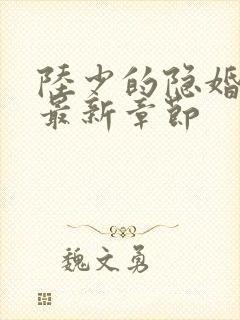 陸少的隐婚
最新章節
魏文勇